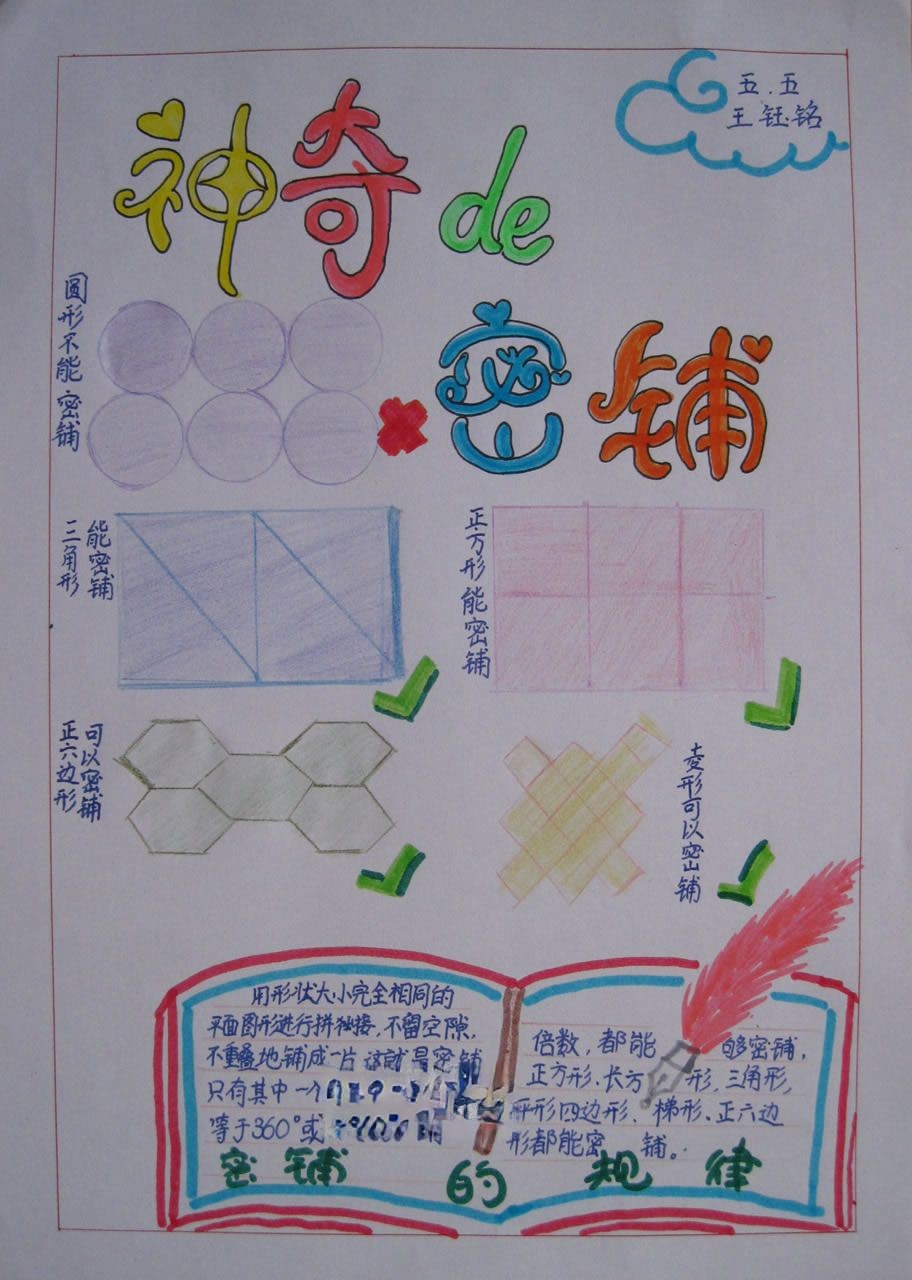 五.五
王钰铭
神奇de
密铺
圆形不能密铺
三角形
能密铺
正方形能密铺
正六边形
可以密铺
菱形可以密铺
用形状大小完全相同的
平面图形进行拼接,不留空隙,
不重叠地铺成一片 这就是密铺
只有其中一个
等于360°或
倍数,都能够密铺,
正方形、长方形,三角形,
四边形、梯形、正六边
形都能密铺。
密铺的规律